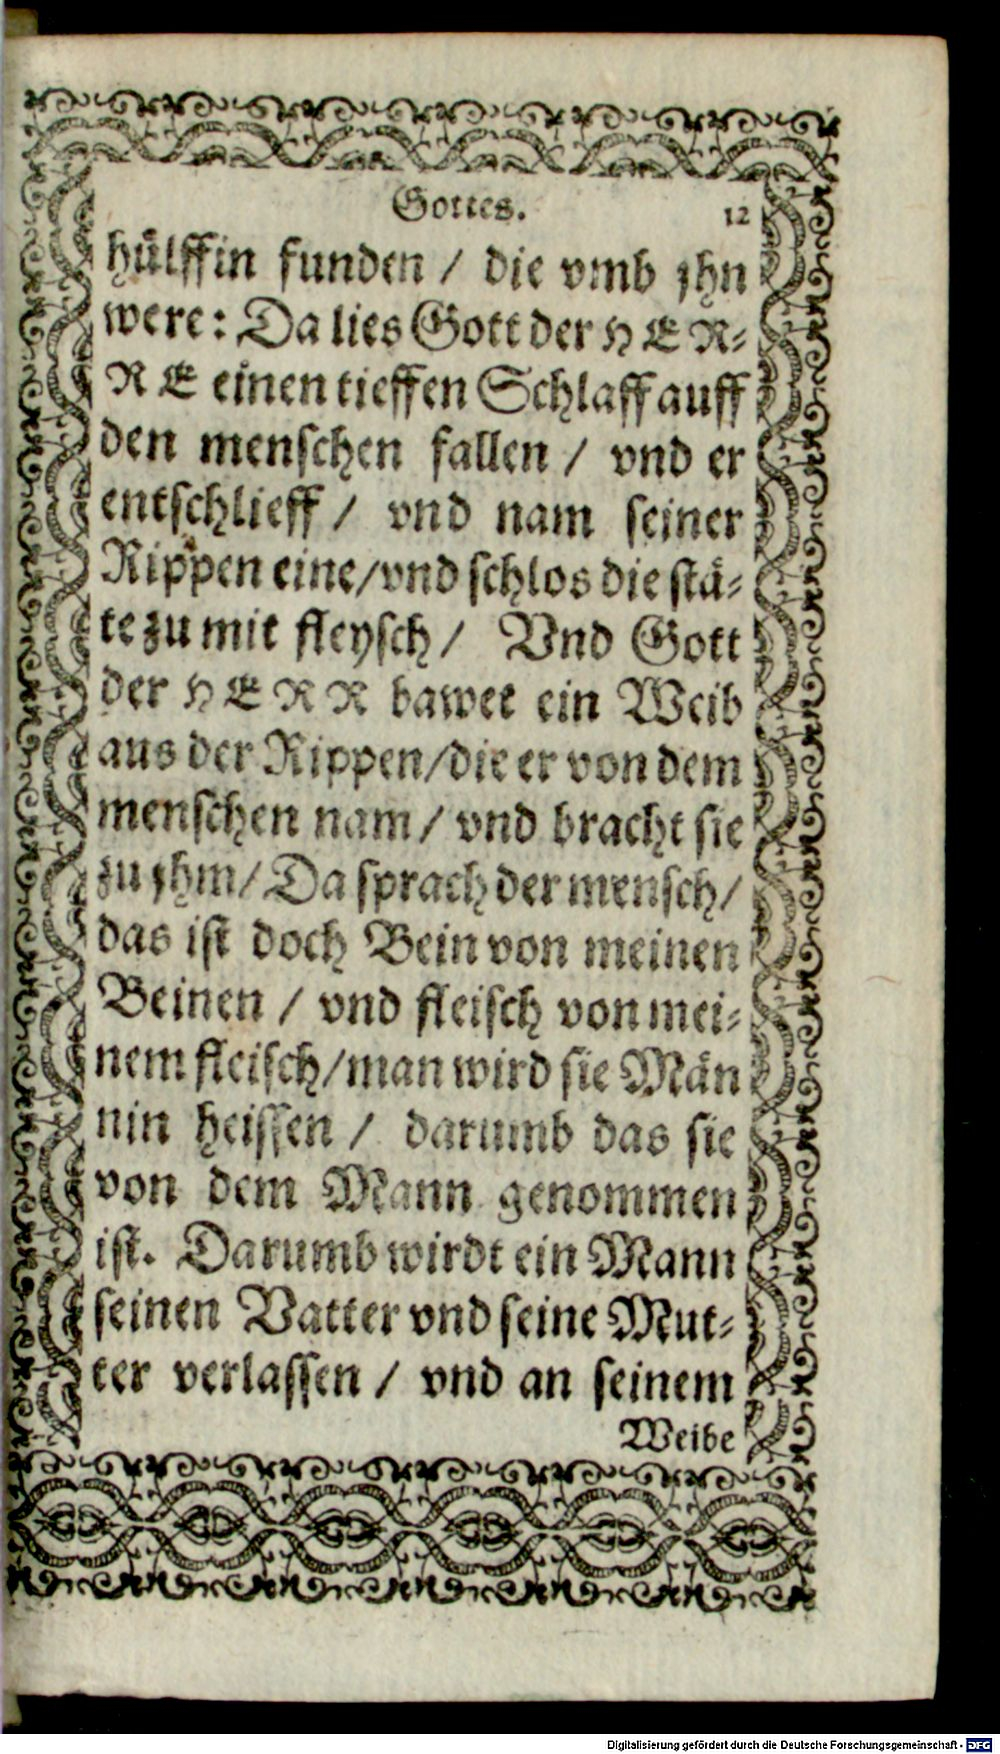 Gottes. 12
hülffin funden / die vmb jhn
were: Da lies Gott der HER-
RE einen tieffen Schlaff auff
den menschen fallen / vnd er
entschlieff / vnd nam seiner
Rippen eine/vnd schlos die stä-
te zu mit fleysch / Vnd Gott
der HERR bawet ein Weib
aus der Rippen/die er von dem
menschen nam / vnd bracht sie
zu jhm/ Da sprach der mensch/
das ist doch Bein von meinen
Beinen / vnd fleisch von mei-
nem fleisch/man wird sie Män
nin heissen / darumb das sie
von dem Mann genommen
ist. Darumb wirdt ein Mann
seinen Vatter vnd seine Mut-
ter verlassen / vnd an seinem
Weibe
Digitalisierung gefördert durch die Deutsche Forschungsgemeinschaft - DFG